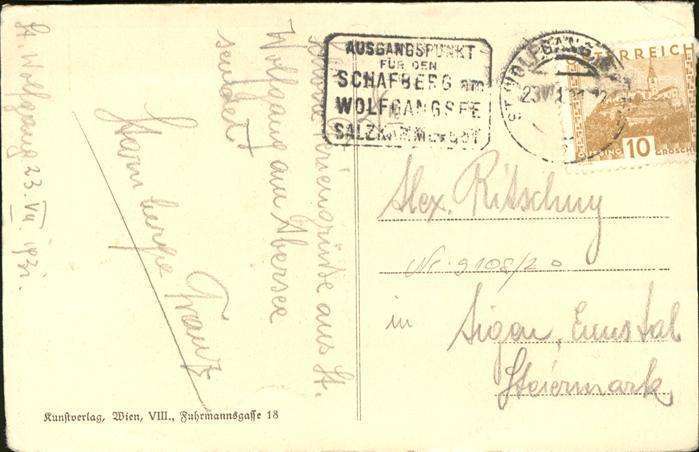 St. Wolfgang 23. VII. 1931.
Schöne Feriengrüße aus St.
Wolfgang am Abersee
sendet
Franz
AUSGANGSPUNKT
FÜR DEN
SCHAFBERG am
WOLFGANGSEE
SALZKAMMERGUT
ST. WOLFGANG
23 VII
ÖSTERREICH
10
GÜSSING GROSCHEN
Alex. Ritschny
Nr. 9108/20
in Aigen, Ennstal
Steiermark
Kunstverlag, Wien, VIII., Fuhrmannsgasse 18